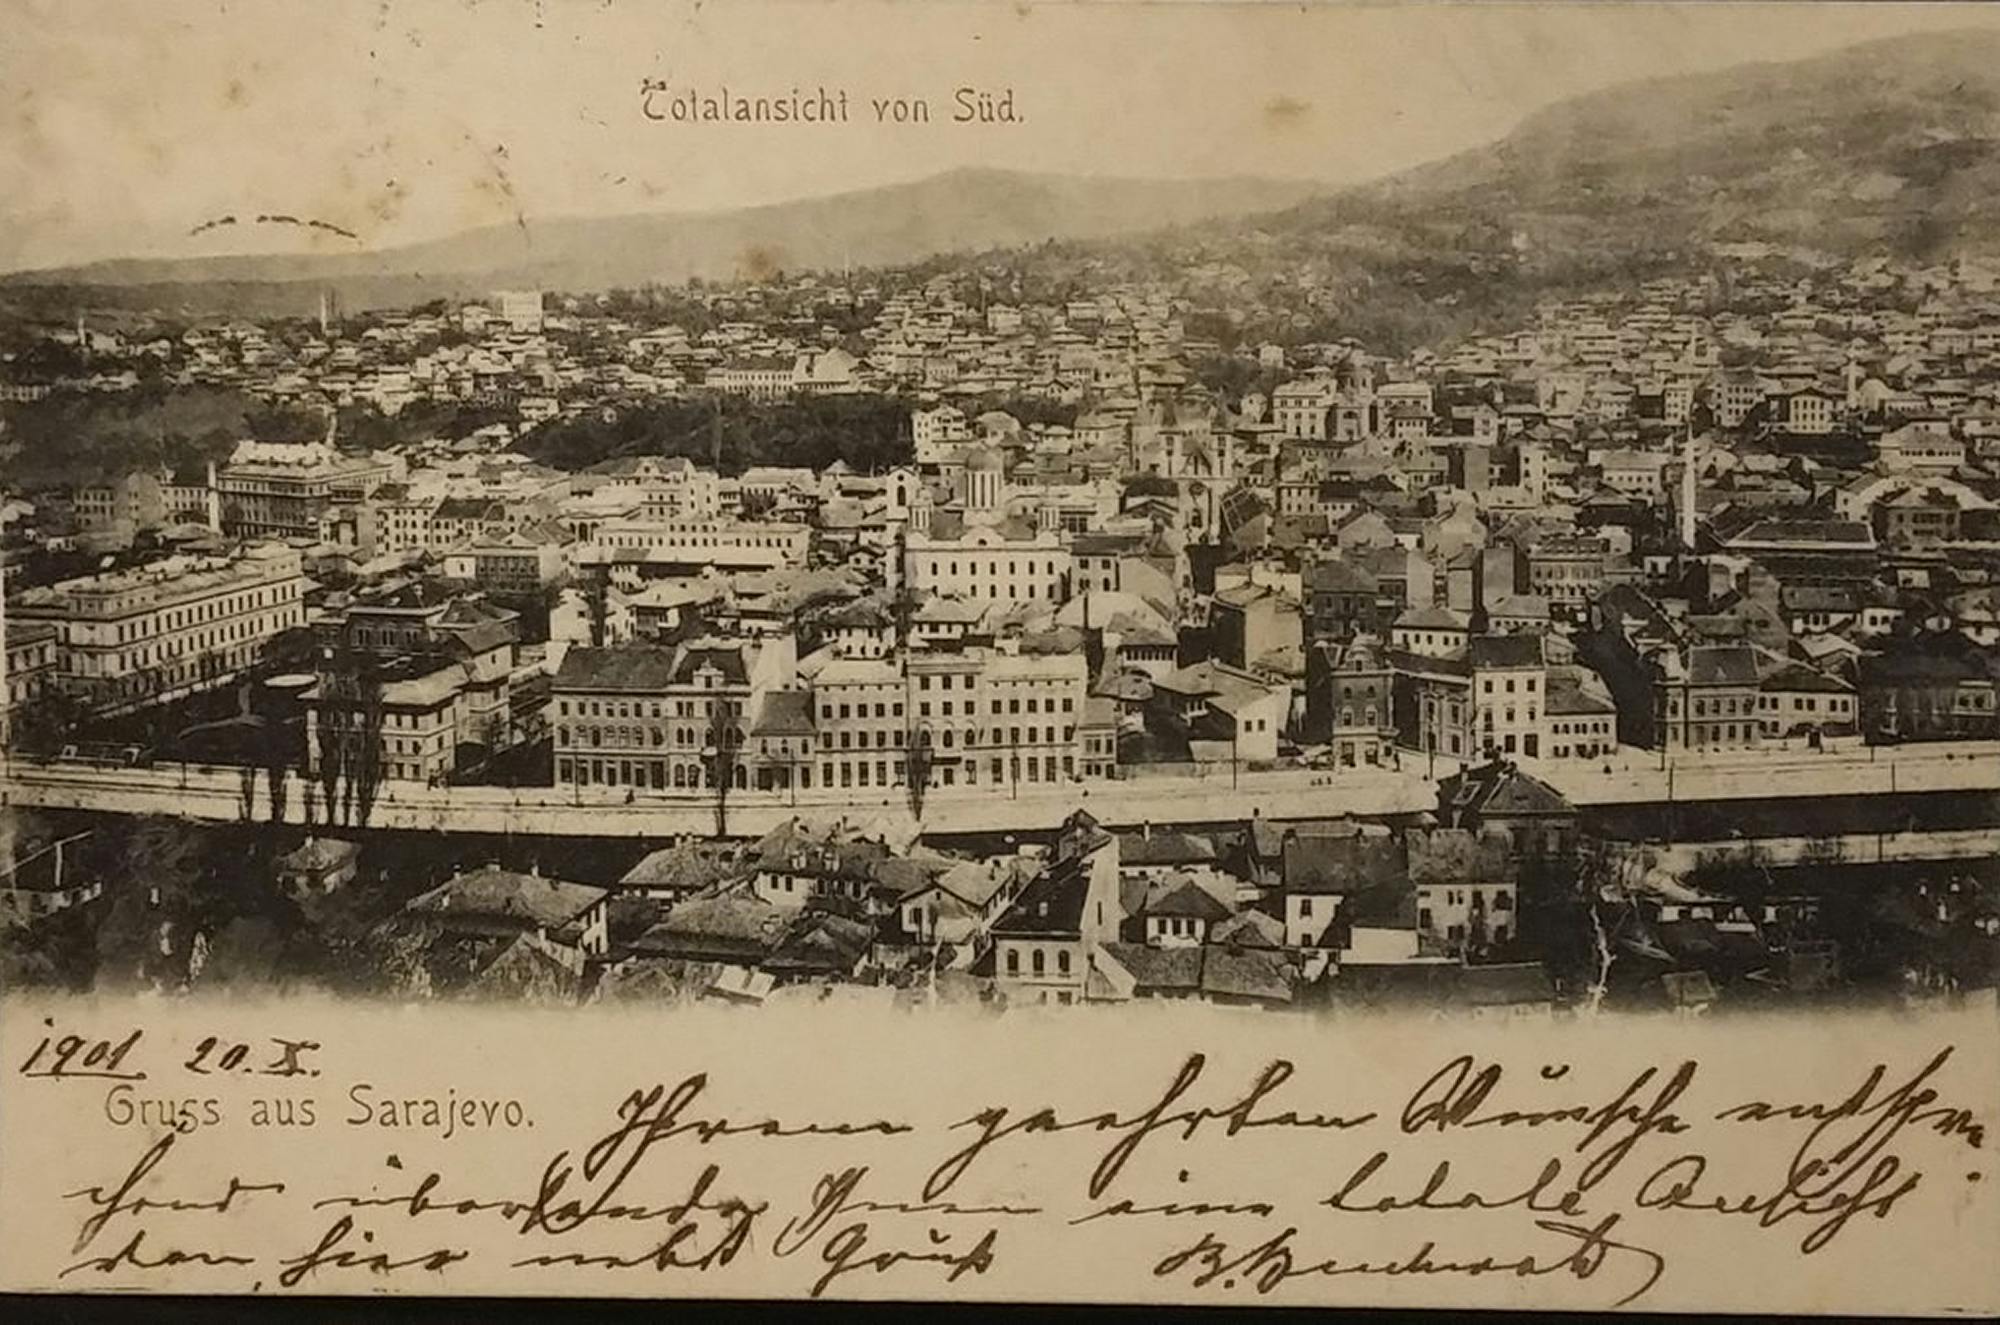 Totalansicht von Süd.
1901. 20. X.
Gruss aus Sarajevo.
Ihrem geehrten Wunsche entspre-
chend übersende Ihnen eine totale Ansicht
von hier nebst Gruß